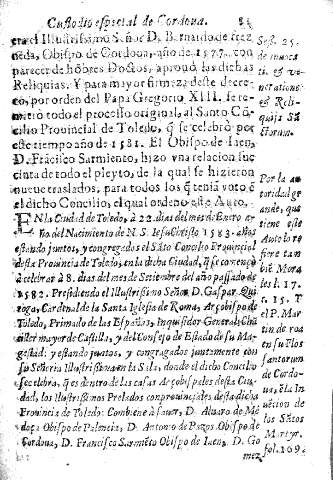 Custodio especial de Cordoua.
era el Illustrissimo Señor D. Bernardo de Frez
neda, Obispo de Cordoua, año de 1577. con
parecer de hõbres Doctos, aprouò las dichas
Reliquias. Y para mayor firmeza deste decre
to, por orden del Papa Gregorio XIII. se re-
mitiò todo el processo original, al Santo Cõ
cilio Prouincial de Toledo, q̃ se celebrò por
este tiempo año de 1581. El Obispo de Iaen,
D. Frãcisco Sarmiento, hizo vna relacion suc
cinta de todo el pleyto, de la qual se hizieron
nueue traslados, para todos los q̃ teniã voto ẽ
el dicho Concilio, el qual ordenò este Auto.
EN la Ciudad de Toledo, à 22. dias del mes de Enero año
del Nacimiento de N. S. Iesu Christo 1583. años
estando juntos, y congregados el Sãto Concilio Prouincial
desta Prouincia de Toledo, en la dicha Ciudad, que se començò
à celebrar à 8. dias del mes de Setiembre del año passado de
1582. Presidiendo el Illustrissimo Señor D. Gaspar Qui
roga, Cardenal de la Santa Iglesia de Roma, Arçobispo de
Toledo, Primado de las Españas, Inquisidor General, Chã
ciller mayor de Castilla, y del Consejo de Estado de su Ma
gestad: y estando juntos, y congragados juntamente con
su Señoria Illustrissima en la Sala, donde el dicho Concilio
se celebra, que es dentro de las casas Arçobispales desta Ciu-
dad, los Illustrissimos Prelados conprouinciales desta dicha
Prouincia de Toledo: Combiene à sauer, D. Aluaro de Mẽ
doça Obispo de Palencia, D. Antonio de Pazos Obispo de
Cordoua, D. Francisco Sarmiẽto Obispo de Iaen, D. Go
mez
Ses. 25.
de inuoca
ti. & ve
neratione
& Reli-
quijs Sã
ctorum.
Por la au
toridad gr
ande, que
tiene este
Auto lo re
fiere tam
biẽ Mora
les l. 17.
c. 15. Y
el P. Mar
tin de roa
en su Flos
Santorum
de Cordo-
ua, ẽ la In
uẽcion de
los Sãtos
Martyr.
fol. 169.